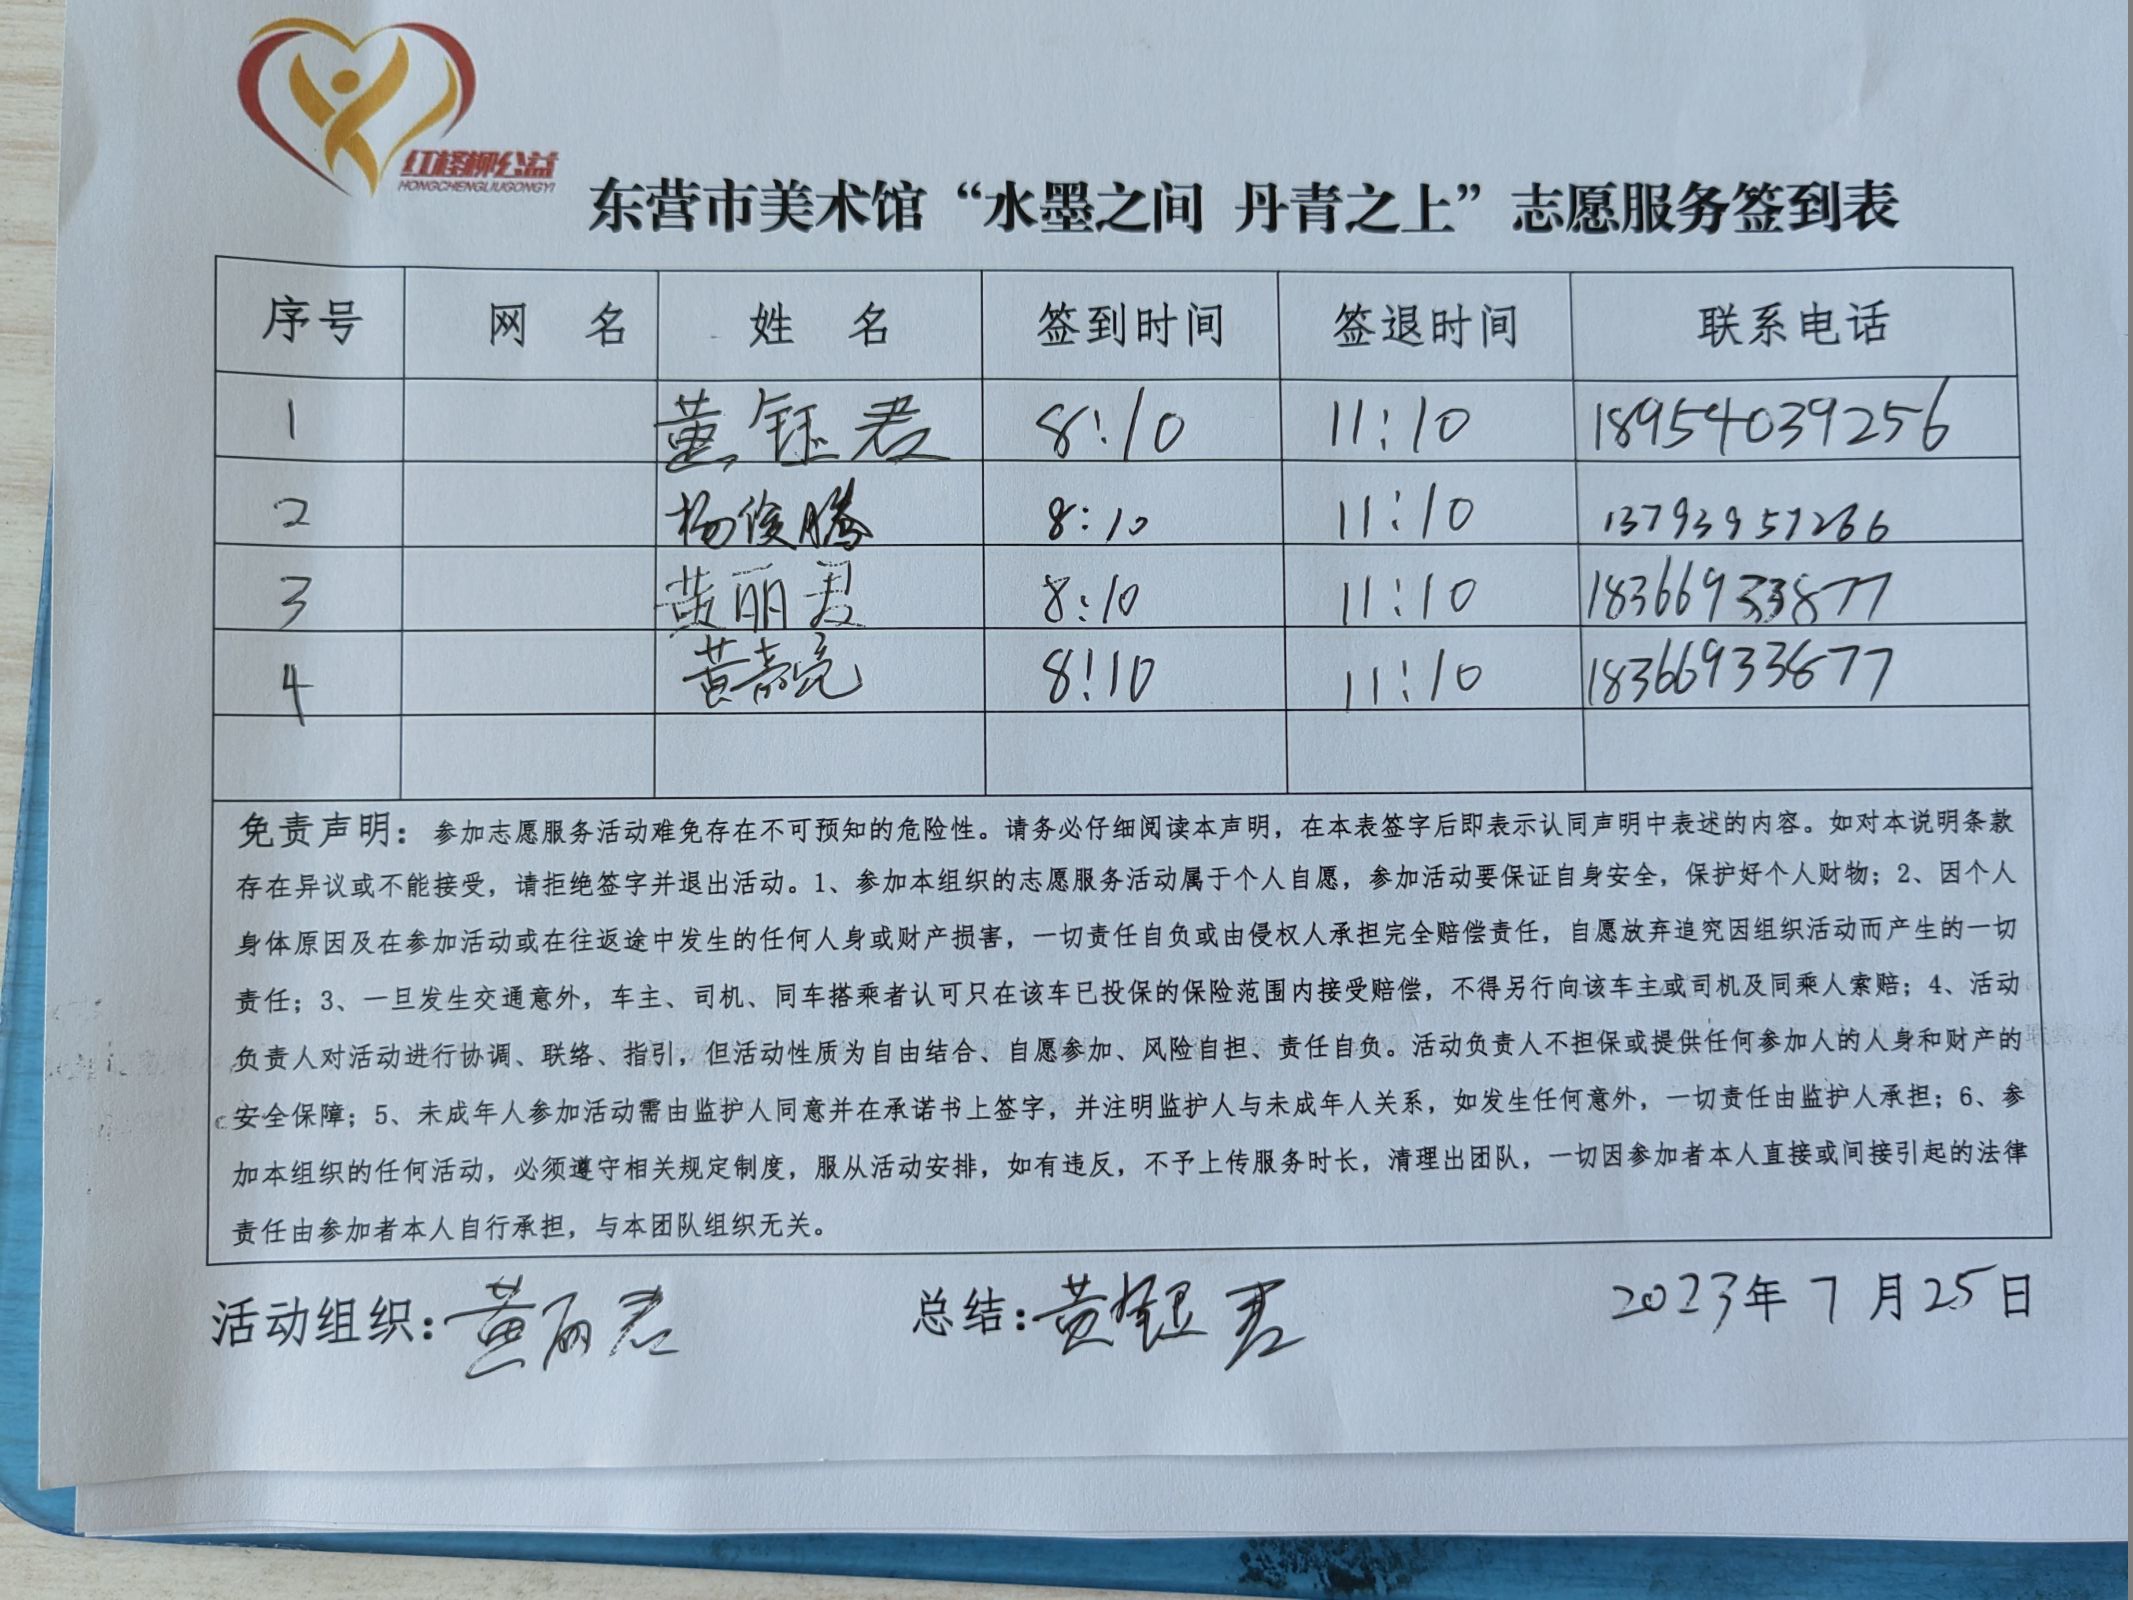 红柽柳公益
HONGCHENGLIUGONGYI
东营市美术馆“水墨之间 丹青之上”志愿服务签到表
序号 网 名 姓 名 签到时间 签退时间 联系电话
1 黄钰君 8:10 11:10 18954039256
2 杨俊腾 8:10 11:10 13793957266
3 黄丽君 8:10 11:10 18366933877
4 黄 8:10 11:10 18366933877
免责声明：参加志愿服务活动难免存在不可预知的危险性。请务必仔细阅读本声明，在本表签字后即表示认同声明中表述的内容。如对本说明条款
存在异议或不能接受，请拒绝签字并退出活动。1、参加本组织的志愿服务活动属于个人自愿，参加活动要保证自身安全，保护好个人财物；2、因个人
身体原因及在参加活动或在往返途中发生的任何人身或财产损害，一切责任自负或由侵权人承担完全赔偿责任，自愿放弃追究因组织活动而产生的一切
责任；3、一旦发生交通意外，车主、司机、同车搭乘者认可只在该车已投保的保险范围内接受赔偿，不得另行向该车主或司机及同乘人索赔；4、活动
负责人对活动进行协调、联络、指引，但活动性质为自由结合、自愿参加、风险自担、责任自负。活动负责人不担保或提供任何参加人的人身和财产的
安全保障；5、未成年人参加活动需由监护人同意并在承诺书上签字，并注明监护人与未成年人关系，如发生任何意外，一切责任由监护人承担；6、参
加本组织的任何活动，必须遵守相关规定制度，服从活动安排，如有违反，不予上传服务时长，清理出团队，一切因参加者本人直接或间接引起的法律
责任由参加者本人自行承担，与本团队组织无关。
活动组织：黄丽君 总结：黄钰君 2023年7月25日